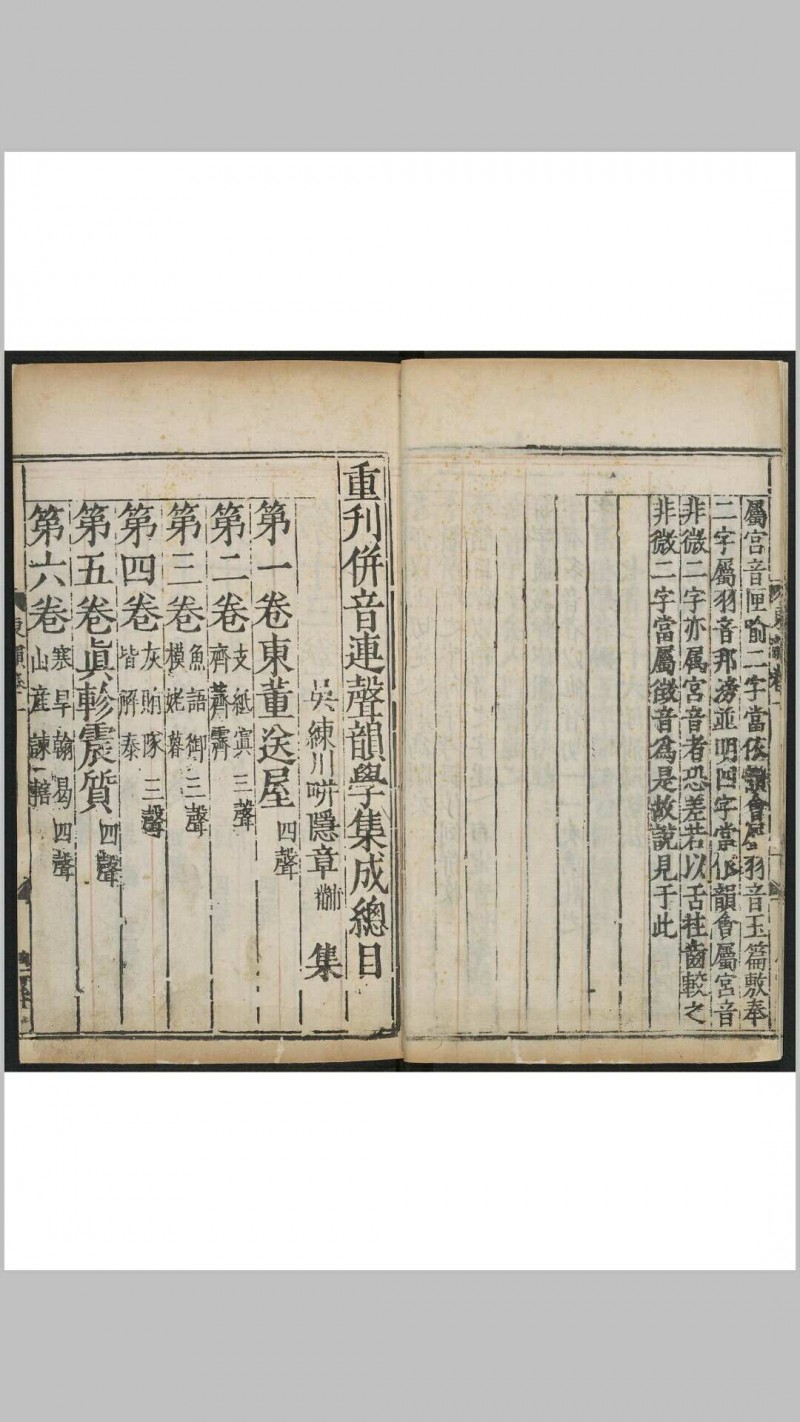 屬宮音匣喻二字當依韻會屬羽音玉篇敷奉
二字屬羽音邦滂並明四字當依韻會屬宮音
非微二字亦属宮音者恐差若以舌柱齒較之
非微二字當屬徵音爲是故說見于此
重刊併音連聲韻學集成總目
吳練川畊隱章黼集
第一卷東董送屋四聲
第二卷支紙寘齊薺霽三聲
第三卷魚語御模姥暮三聲
第四卷灰賄隊皆解泰三聲
第五卷眞軫震質四聲
第六卷寒旱翰曷山産諫轄四聲